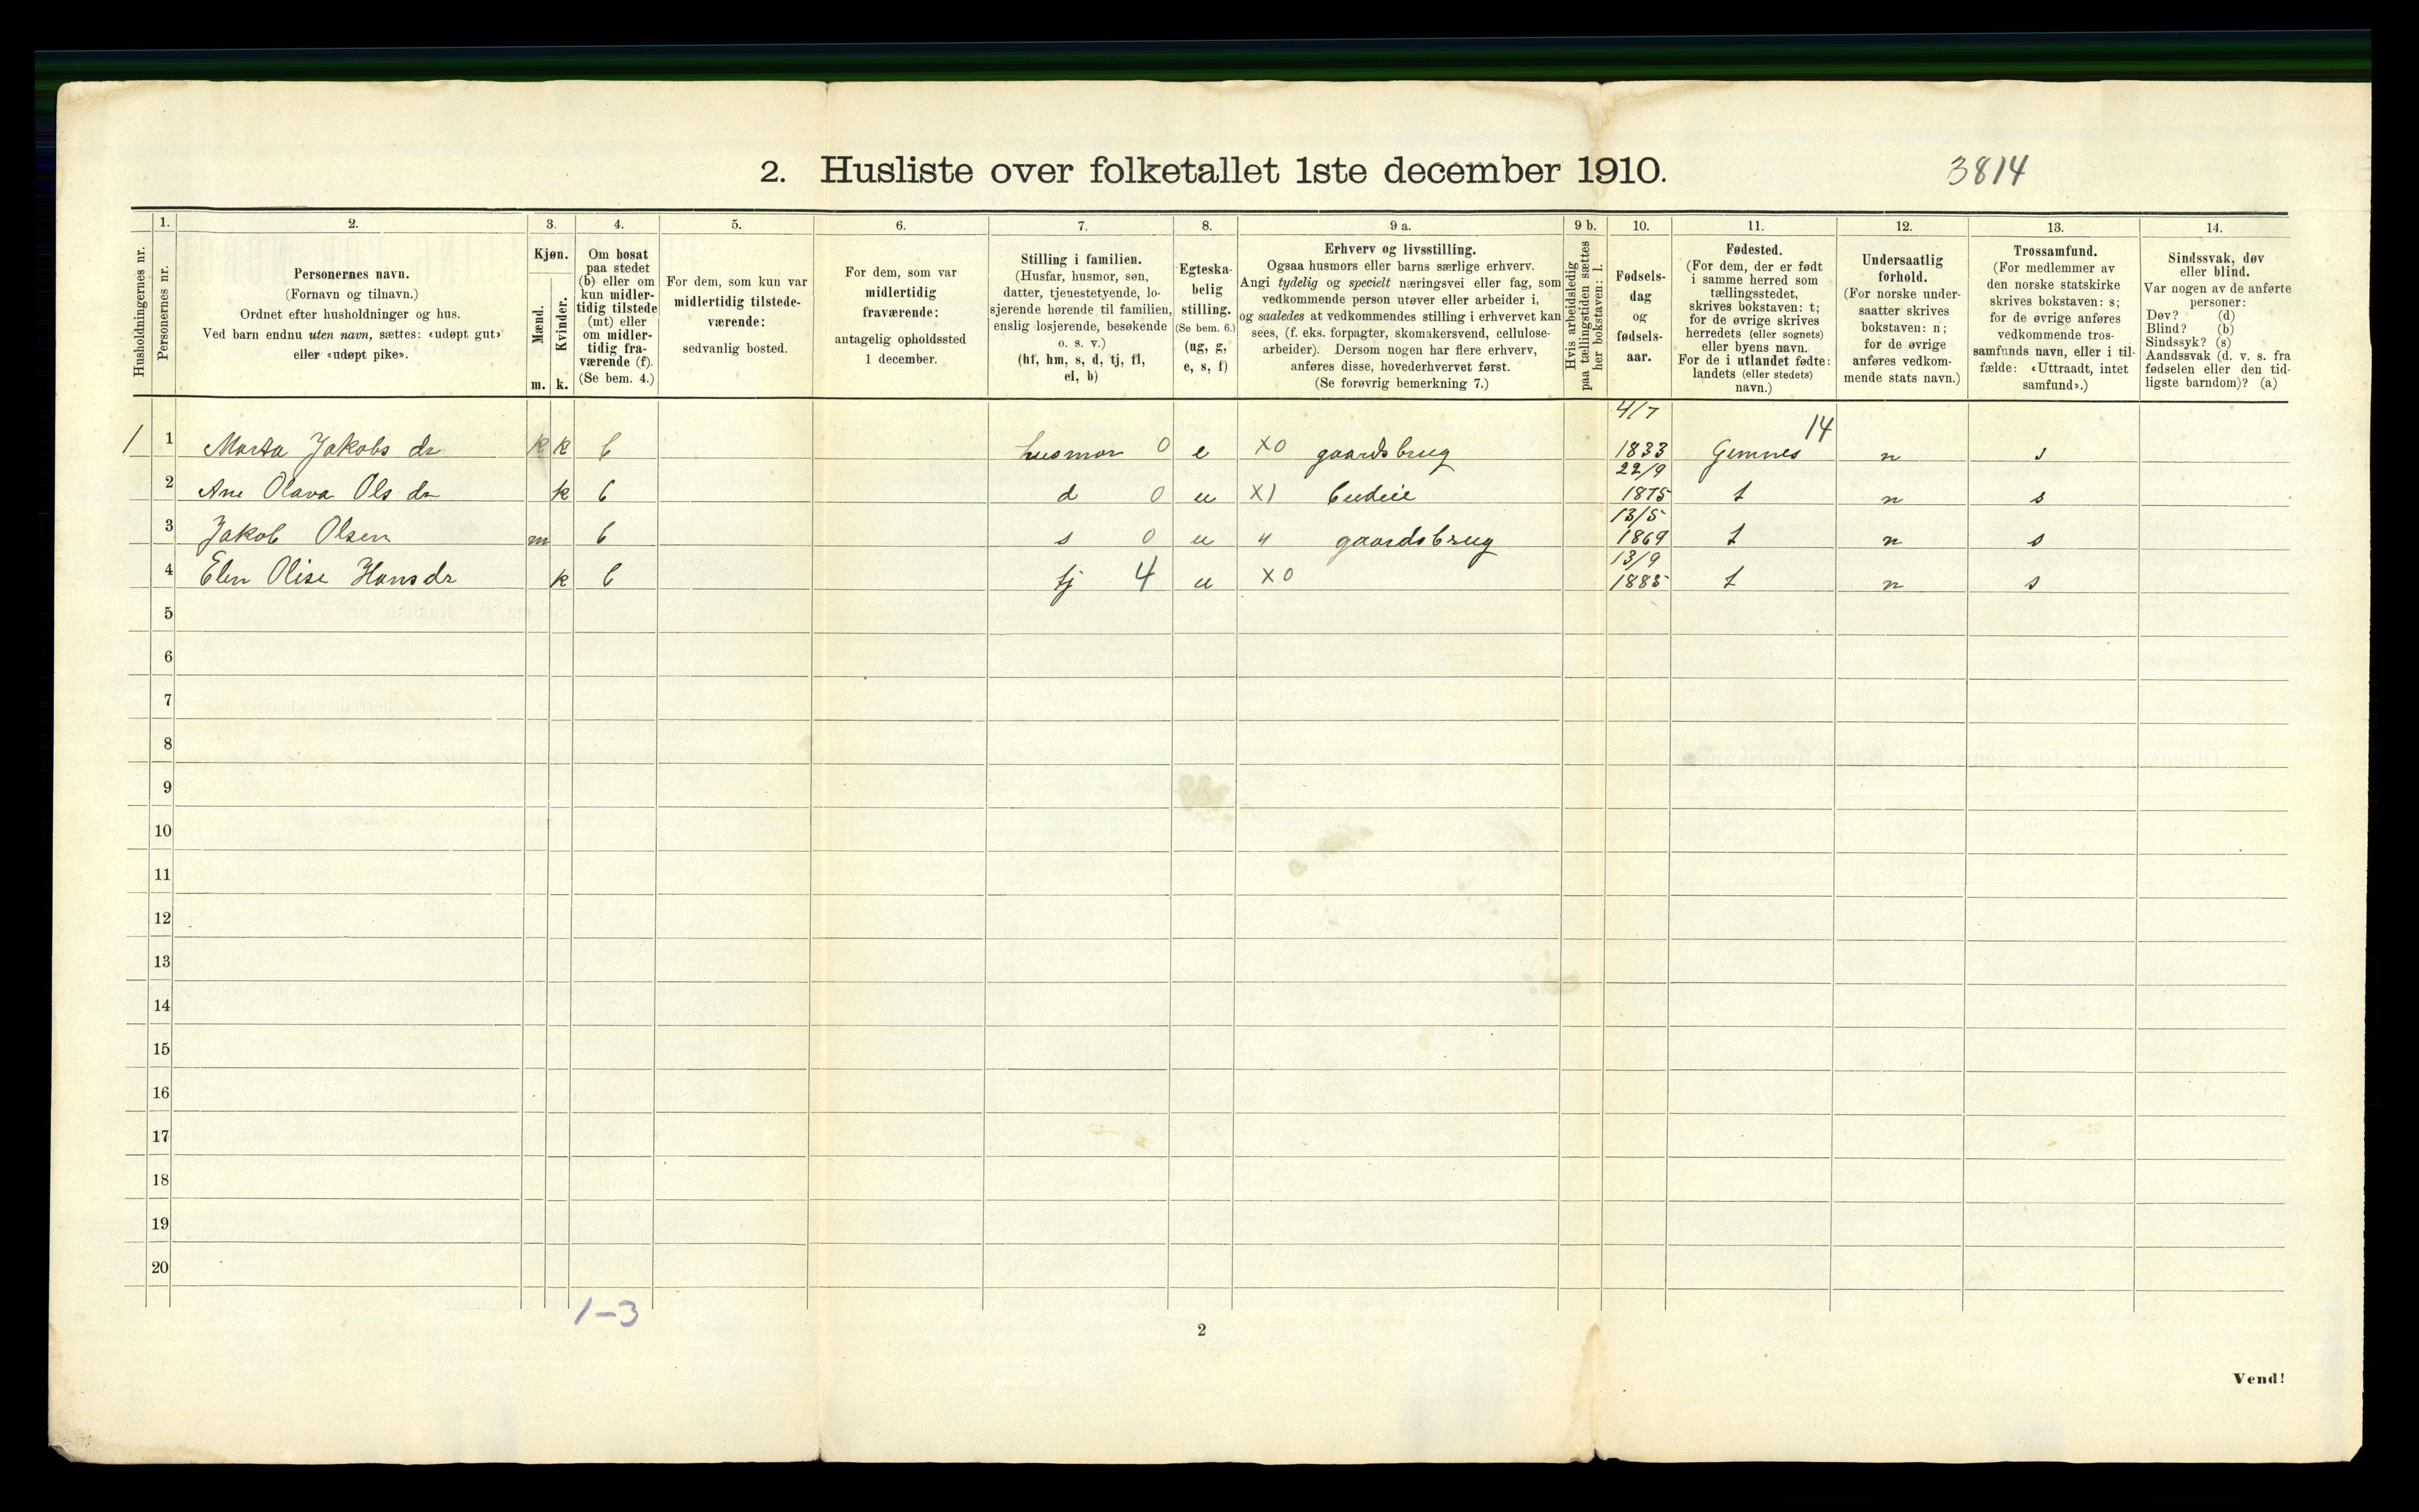 2. Husliste over folketallet 1ste december 1910.
3814
1. 2. 3. 4. 5. 6. 7. 8. 9 a. 9 b. 10. 11. 12. 13. 14.
Husholdningernes nr.
Personernes nr.
Personernes navn.
(Fornavn og tilnavn.)
Ordnet efter husholdninger og hus.
Ved barn endnu uten navn, sættes: «udøpt gut»
eller «udøpt pike».
Kjøn.
Mænd.
Kvinder.
m. k.
Om bosat
paa stedet
(b) eller om
kun midler-
tidig tilstede
(mt) eller
om midler-
tidig fra-
værende (f).
(Se bem. 4.)
For dem, som kun var
midlertidig tilstede-
værende:
sedvanlig bosted.
For dem, som var
midlertidig
fraværende:
antagelig opholdssted
1 december.
Stilling i familien.
(Husfar, husmor, søn,
datter, tjenestetyende, lo-
sjerende hørende til familien,
enslig losjerende, besøkende
o. s. v.)
(hf, hm, s, d, tj, fl,
el, b)
Egteska-
belig
stilling.
(Se bem. 6.)
(ug, g,
e, s, f)
Erhverv og livsstilling.
Ogsaa husmors eller barns særlige erhverv.
Angi tydelig og specielt næringsvei eller fag, som
vedkommende person utøver eller arbeider i,
og saaledes at vedkommendes stilling i erhvervet kan
sees, (f. eks. forpagter, skomakersvend, cellulose-
arbeider). Dersom nogen har flere erhverv,
anføres disse, hovederhvervet først.
(Se forøvrig bemerkning 7.)
Hvis arbeidsledig
paa tællingstiden sættes
her bokstaven: l.
Fødsels-
dag
og
fødsels-
aar.
Fødested.
(For dem, der er født
i samme herred som
tællingsstedet,
skrives bokstaven: t;
for de øvrige skrives
herredets (eller sognets)
eller byens navn.
For de i utlandet fødte:
landets (eller stedets)
navn.)
Undersaatlig
forhold.
(For norske under-
saatter skrives
bokstaven: n;
for de øvrige
anføres vedkom-
mende stats navn.)
Trossamfund.
(For medlemmer av
den norske statskirke
skrives bokstaven: s;
for de øvrige anføres
vedkommende tros-
samfunds navn, eller i til-
fælde: «Uttraadt, intet
samfund».)
Sindssvak, døv
eller blind.
Var nogen av de anførte
personer:
Døv? (d)
Blind? (b)
Sindssyk? (s)
Aandssvak (d. v. s. fra
fødselen eller den tid-
ligste barndom)? (a)
1 1 Marta Jakobs dr k k b husmor 0 e X0 gaardsbrug 4/7 1833 Gemnes 14 n s
2 Ane Olava Ols dr k b d 0 u X1 budeie 22/9 1875 t n s
3 Jakob Olsen m b s 0 u " gaardsbrug 13/5 1869 t n s
4 Elen Olise Hansdr k b tj 4 u X0 13/9 1885 t n s
5
6
7
8
9
10
11
12
13
14
15
16
17
18
19
20
1-3
2
Vend!